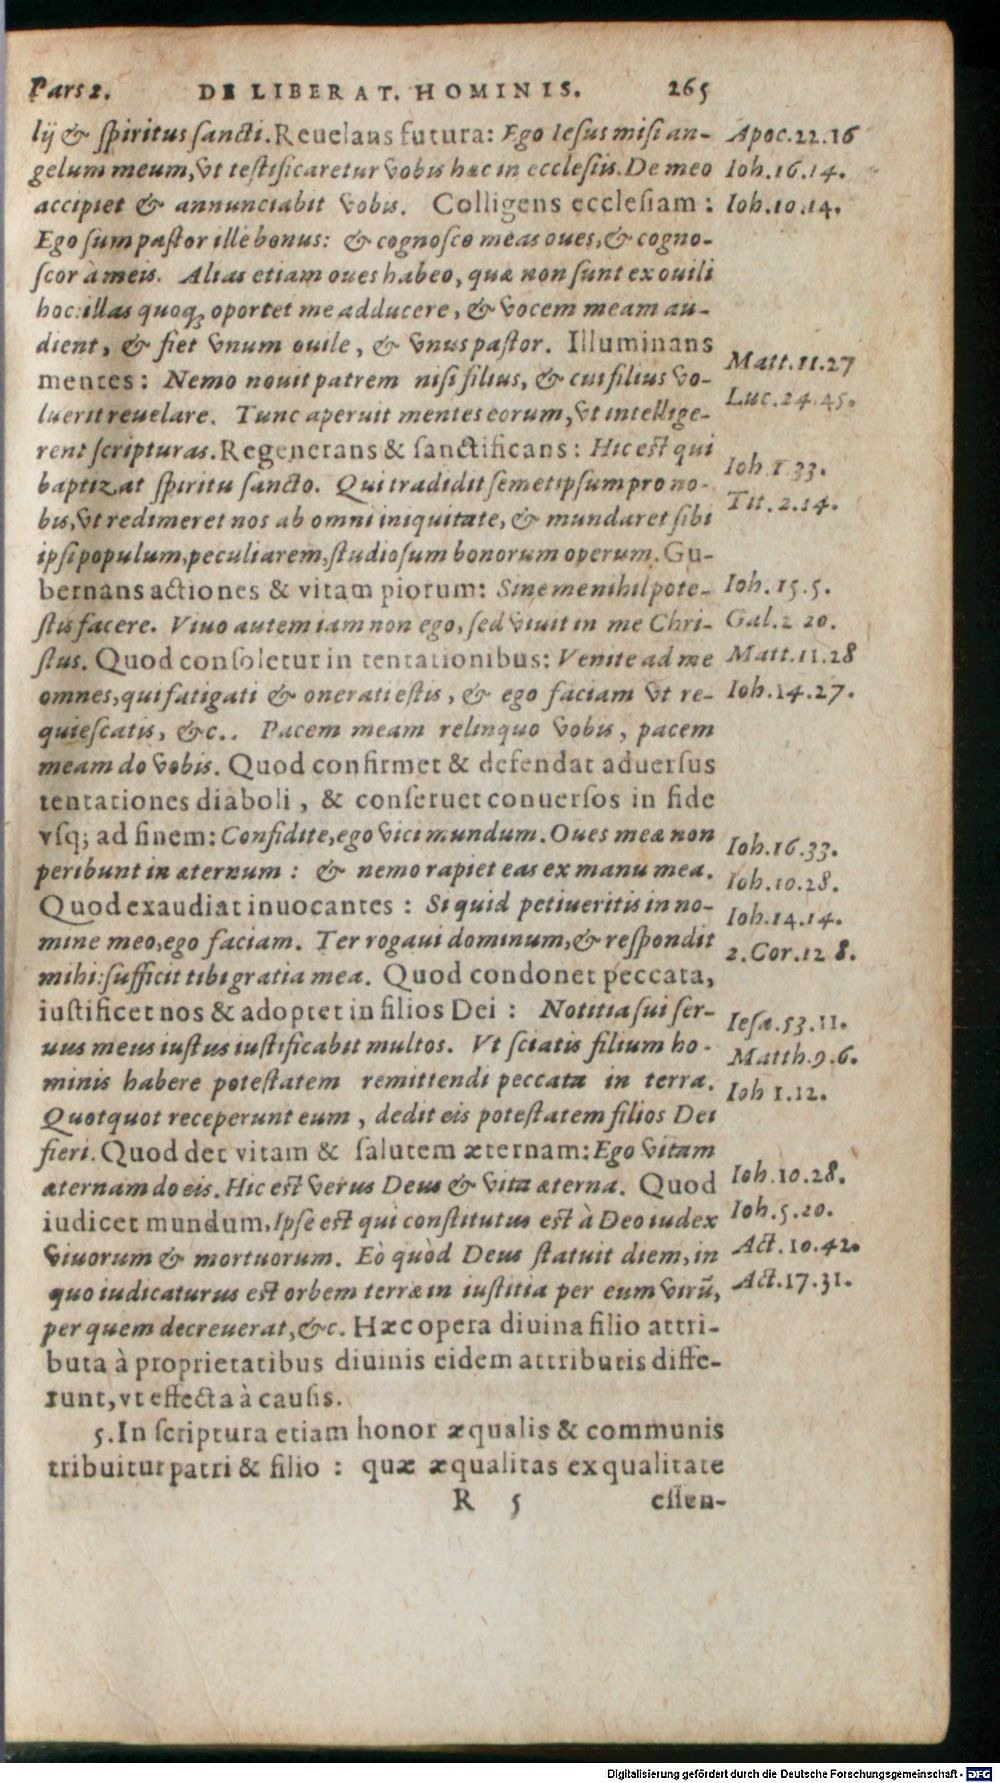 Pars 2. DE LIBERAT. HOMINIS. 265
lij & spiritus sancti. Reuelans futura: Ego Iesus misi an- Apoc.22.16
gelum meum, vt testificaretur vobis hæc in ecclesiis. De meo Ioh.16.14.
accipiet & annunciabit vobis. Colligens ecclesiam: Ioh.10.14.
Ego sum pastor ille bonus: & cognosco meas oues, & cogno-
scor à meis. Alias etiam oues habeo, quæ non sunt ex ouili
hoc: illas quoq; oportet me adducere, & vocem meam au-
dient, & fiet vnum ouile, & vnus pastor. Illuminans
mentes: Nemo nouit patrem nisi filius, & cui filius vo- Matt.11.27
luerit reuelare. Tunc aperuit mentes eorum, vt intellige- Luc.24.45.
rent scripturas. Regenerans & sanctificans: Hic est qui
baptizat spiritu sancto. Qui tradidit semetipsum pro no- Ioh.1.33.
bis, vt redimeret nos ab omni iniquitate, & mundaret sibi Tit.2.14.
ipsi populum, peculiarem, studiosum bonorum operum. Gu-
bernans actiones & vitam piorum: Sine me nihil pote- Ioh.15.5.
stis facere. Viuo autem iam non ego, sed viuit in me Chri- Gal.2 20.
stus. Quod consoletur in tentationibus: Venite ad me Matt.11.28
omnes, qui fatigati & onerati estis, & ego faciam vt re- Ioh.14.27.
quiescatis, &c.. Pacem meam relinquo vobis, pacem
meam do vobis. Quod confirmet & defendat aduersus
tentationes diaboli, & conseruet conuersos in fide
vsq; ad finem: Confidite, ego vici mundum. Oues meæ non Ioh.16.33.
peribunt in æternum: & nemo rapiet eas ex manu mea. Ioh.10.28.
Quod exaudiat inuocantes: Si quid petiueritis in no- Ioh.14.14.
mine meo, ego faciam. Ter rogaui dominum, & respondit 2.Cor.12 8.
mihi: sufficit tibi gratia mea. Quod condonet peccata,
iustificet nos & adoptet in filios Dei: Notitia sui ser- Iesa.53.11.
uus meus iustus iustificabit multos. Vt sciatis filium ho- Matth.9.6.
minis habere potestatem remittendi peccata in terra. Ioh 1.12.
Quotquot receperunt eum, dedit eis potestatem filios Dei
fieri. Quod det vitam & salutem æternam: Ego vitam Ioh.10.28.
æternam do eis. Hic est verus Deus & vita æterna. Quod Ioh.5.20.
iudicet mundum, Ipse est qui constitutus est à Deo iudex Act.10.42.
viuorum & mortuorum. Eò quòd Deus statuit diem, in Act.17.31.
quo iudicaturus est orbem terræ in iustitia per eum virũ,
per quem decreuerat, &c. Hæc opera diuina filio attri-
buta à proprietatibus diuinis eidem attributis diffe-
runt, vt effecta à causis.
5. In scriptura etiam honor æqualis & communis
tribuitur patri & filio: quæ æqualitas ex qualitate
R 5 essen-
Digitalisierung gefördert durch die Deutsche Forschungsgemeinschaft - DFG